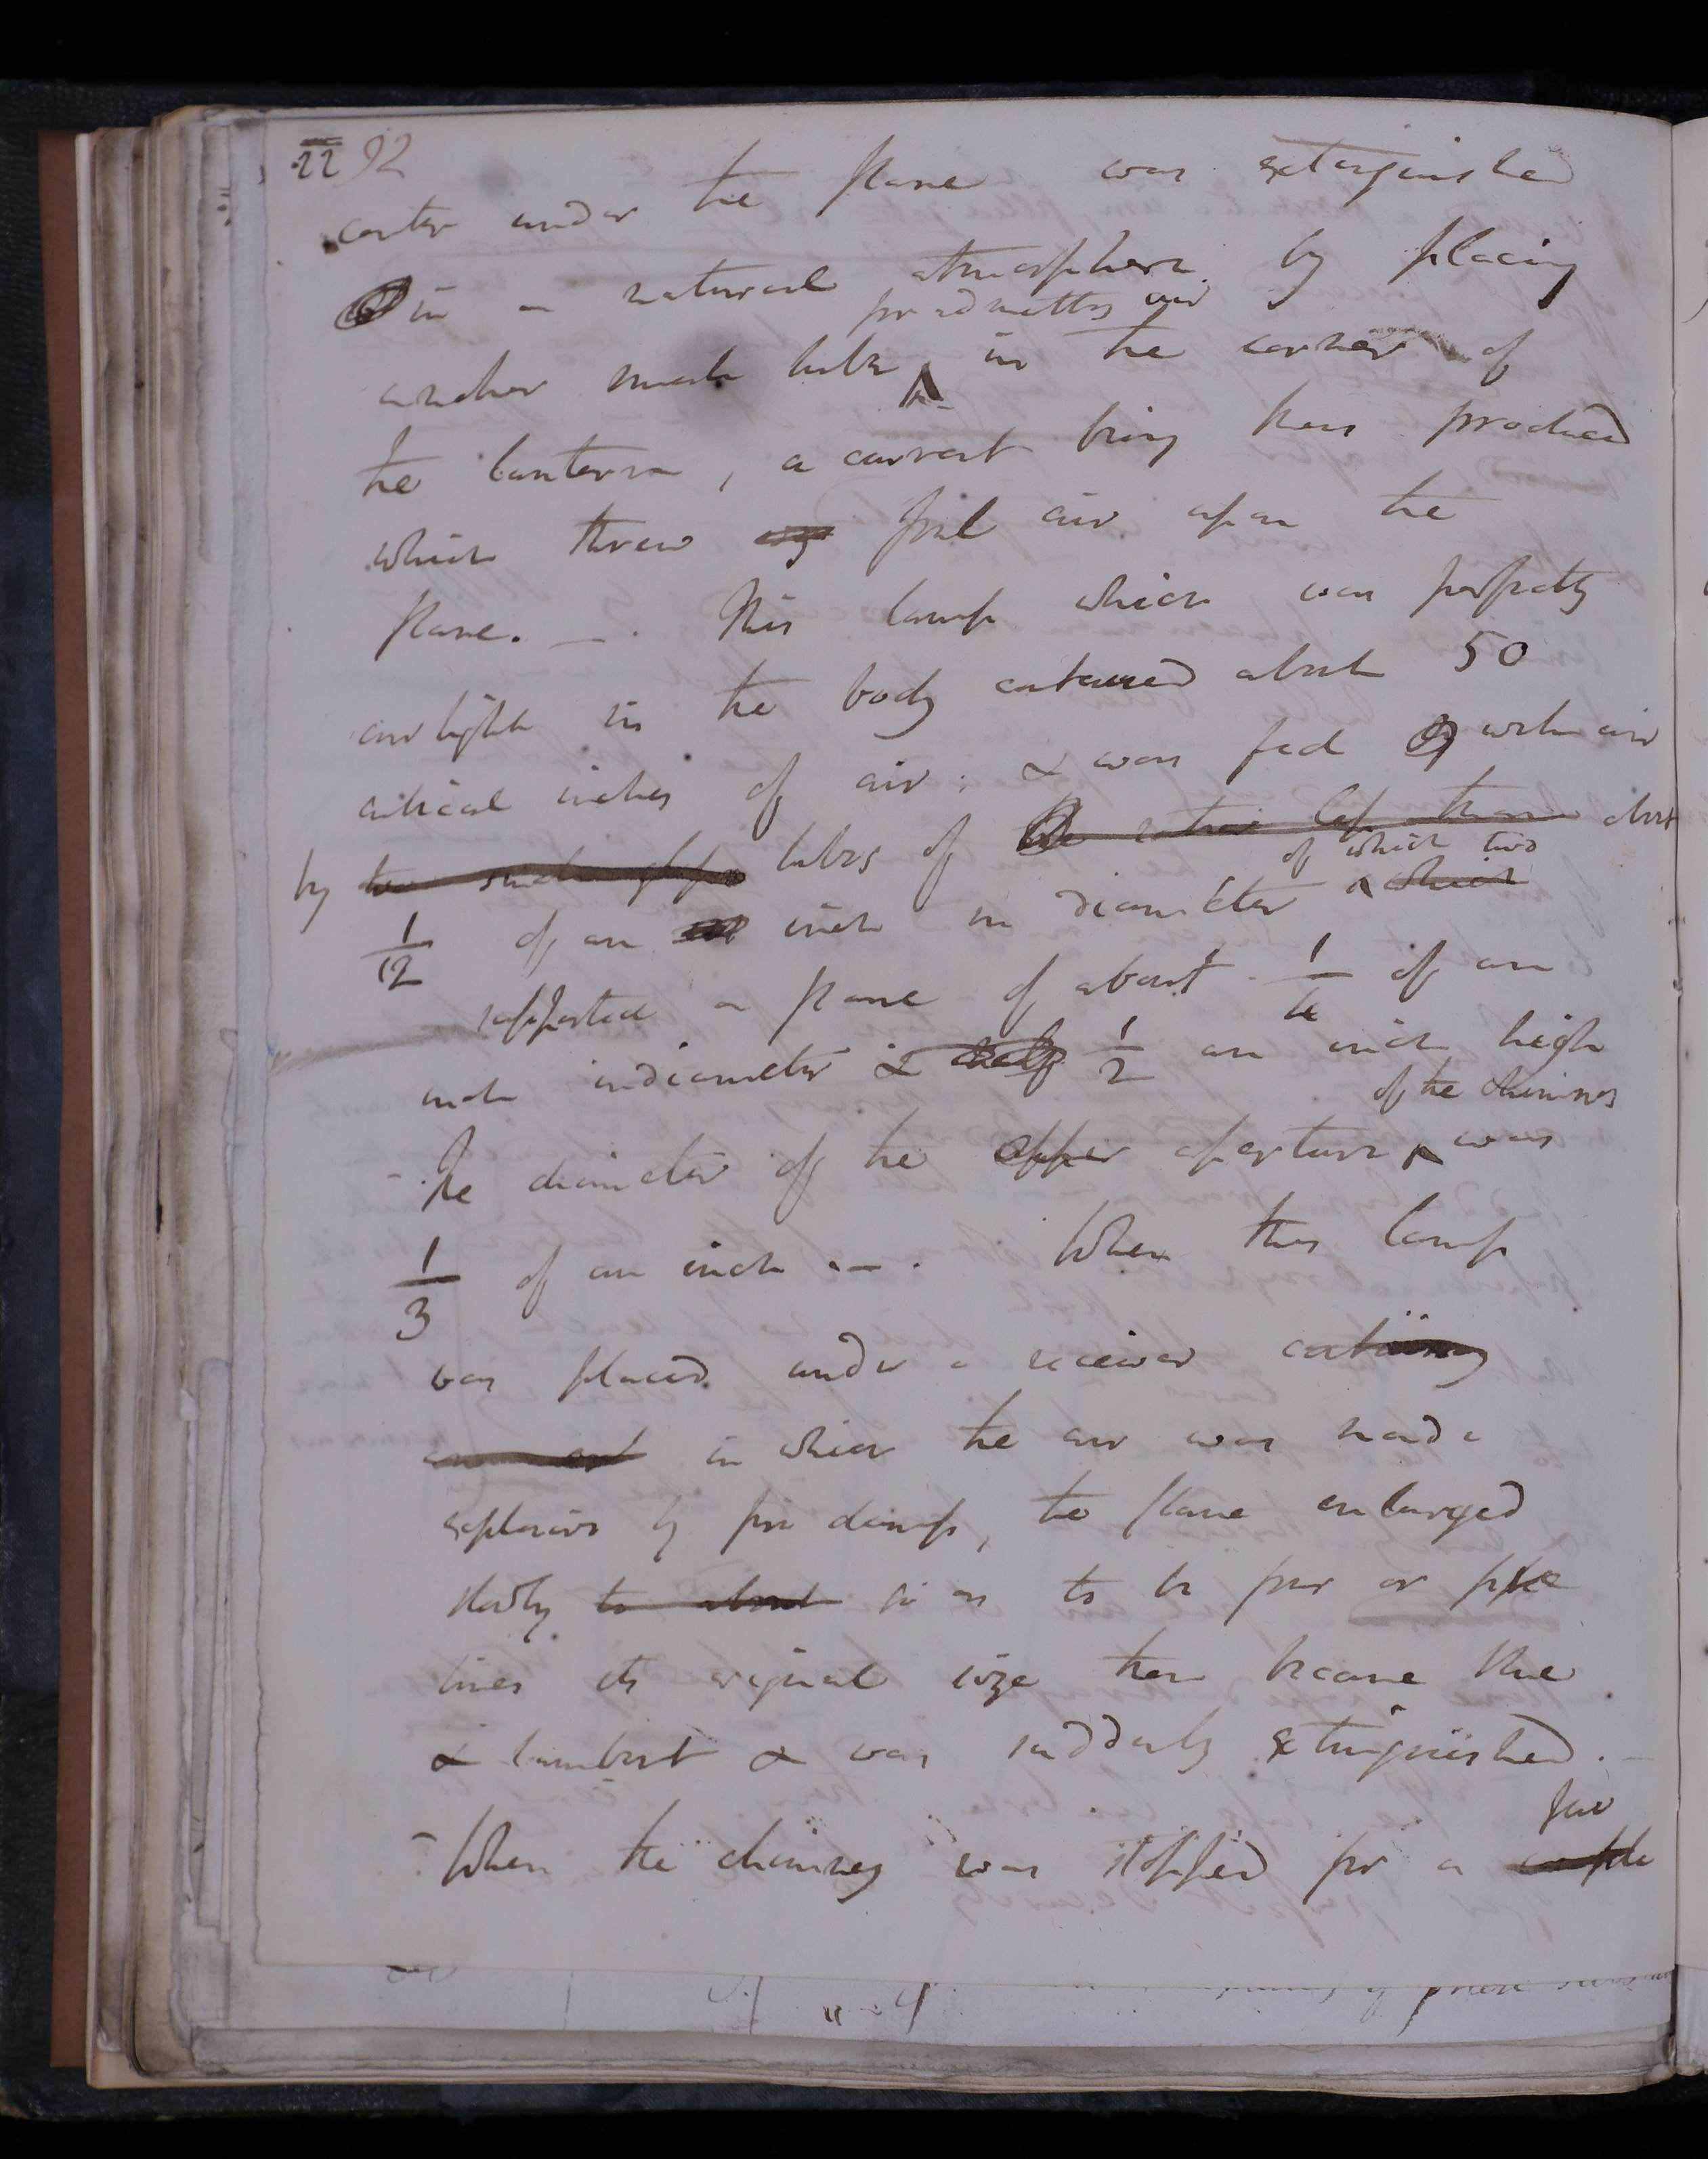 22 92
center under the flame was extinguished
in a natural atmosphere by placing
another small tube in the corner of
for admitting air
the lantern, a current being thus produced
which threw foul air upon the
flame. — This lamp which was perfectly
air tight in the body contained about 50
cubical inches of air: & was fed with air
by two small glass tubes of the less than about
1/12 of an inch in diameter which
of which two
supported a flame of about 1/4 of an
inch in diameter & half 1/2 an inch high
- The diameter of the upper aperture was
of the chimney
1/3 of an inch —. When this lamp
was placed under a receiver containing
in which the air was made
explosive by fire damp, the flame enlarged
slowly to about so as to be four or five
times its original size then became blue
& lambent & was suddenly extinguished. —
- When the chimney was stopped for a couple
few